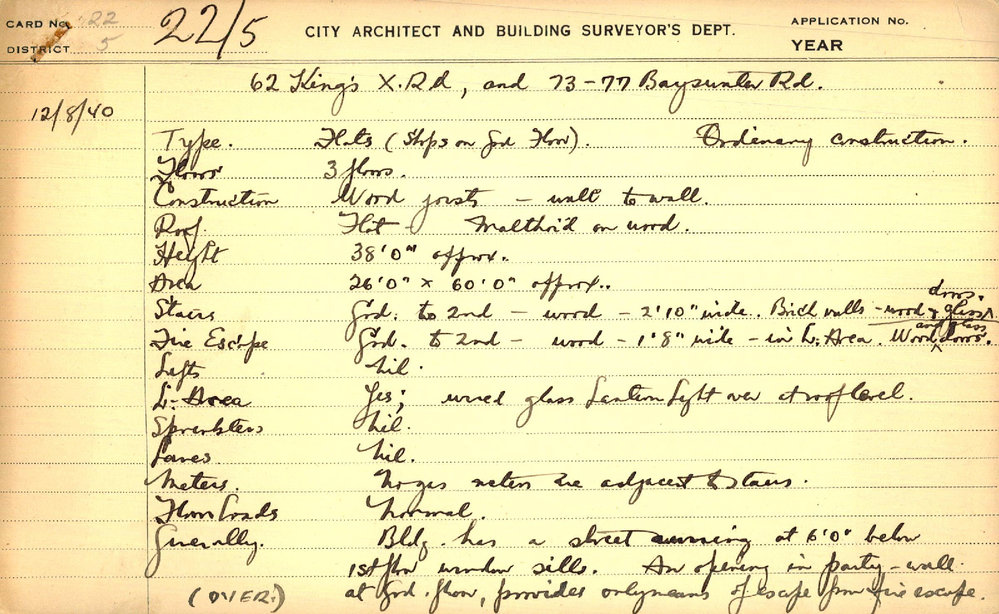 CARD No. 22
DISTRICT 5
22/5
CITY ARCHITECT AND BUILDING SURVEYOR'S DEPT.
APPLICATION No.
YEAR
62 King's X. Rd, and 73-77 Bayswater Rd.
12/8/40
Type. Flats (Shops on Grd Floor). Ordinary construction.
Floors 3 floors.
Construction Wood joists - wall to wall.
Roof Flat - Malthoid on wood.
Height 38'0" approx.
Area 26'0" x 60'0" approx..
Stairs Grd. to 2nd - wood - 2'10" wide. Brick walls - wood & glass doors.
Fire Escape Grd. to 2nd - wood - 1'8" wide - in L. Area. Wood and glass doors.
Lifts nil.
L. Area Yes; wired glass Lantern Light over at roof level.
Sprinklers nil.
Lanes nil.
Meters. No gas meters are adjacent to stairs.
Floor Loads Normal.
Generally. Bldg. has a street awning at 6'0" below
1st floor window sills. An opening in party-wall
at Grd. floor, provides only means of escape from fire escape.
(OVER.)